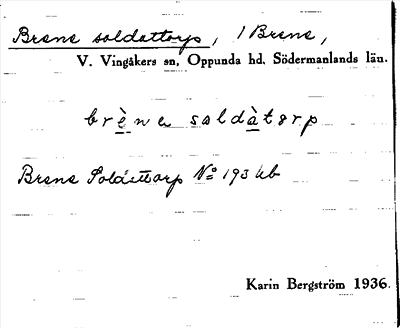 Brene soldattorp, / Brene,
V. Vingåkers sn, Oppunda hd, Södermanlands län.
brène soldàtorp
Brene Soldattorp No 193
Karin Bergström 1936.